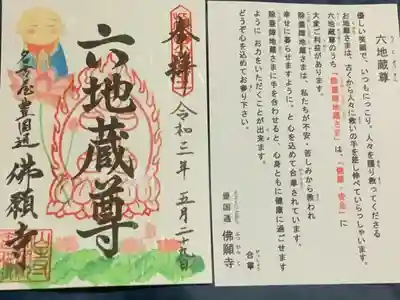 奉拝
令和三年 五月二十九日
六地蔵尊
名古屋豊国通
佛願寺
六地蔵尊
優しい笑顔で、いつもにっこり。人々を護り救ってくださる
お地蔵さまは、古くから人々に救いの手を差し伸べていらっしゃいます。
六地蔵尊のうち「除蓋障地蔵さま」は、「健康・安全」に
大変ご利益があります。
除蓋障地蔵さまは、私たちが不安・苦しみから救われ
幸せに暮らせますように。と心を込めて合掌されています。
除蓋障地蔵さまに手を合わせると、心身ともに健康に過ごせます
ように お力をいただくことが出来ます。
どうぞ心を込めてお参り下さい。
合掌
豊国通 佛願寺